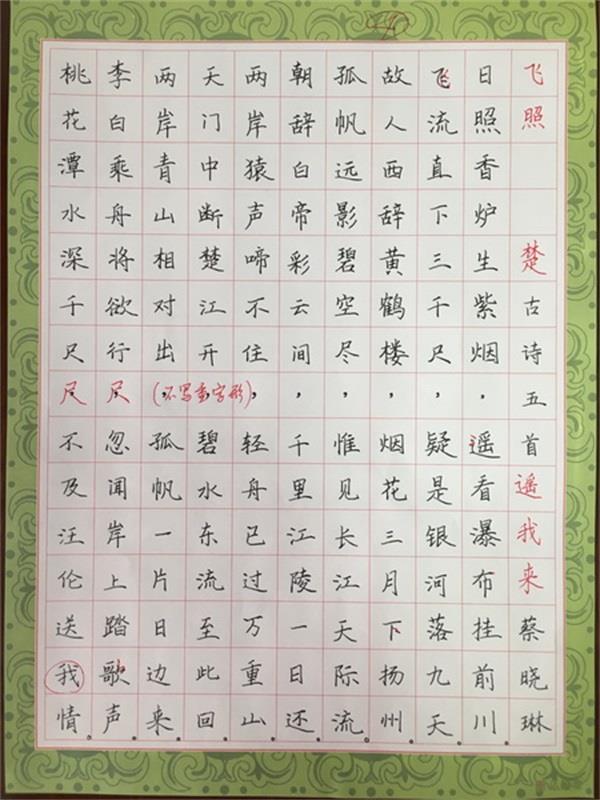 飞照
楚
古诗五首
遥我来
蔡晓琳
日照香炉生紫烟,遥看瀑布挂前川。
飞流直下三千尺,疑是银河落九天。
故人西辞黄鹤楼,烟花三月下扬州。
孤帆远影碧空尽,惟见长江天际流。
朝辞白帝彩云间,千里江陵一日还。
两岸猿声啼不住,轻舟已过万重山。
天门中断楚江开,碧水东流至此回。
两岸青山相对出,孤帆一片日边来。
李白乘舟将欲行,忽闻岸上踏歌声。
桃花潭水深千尺,不及汪伦送我情。
尺尺(不写重字形)